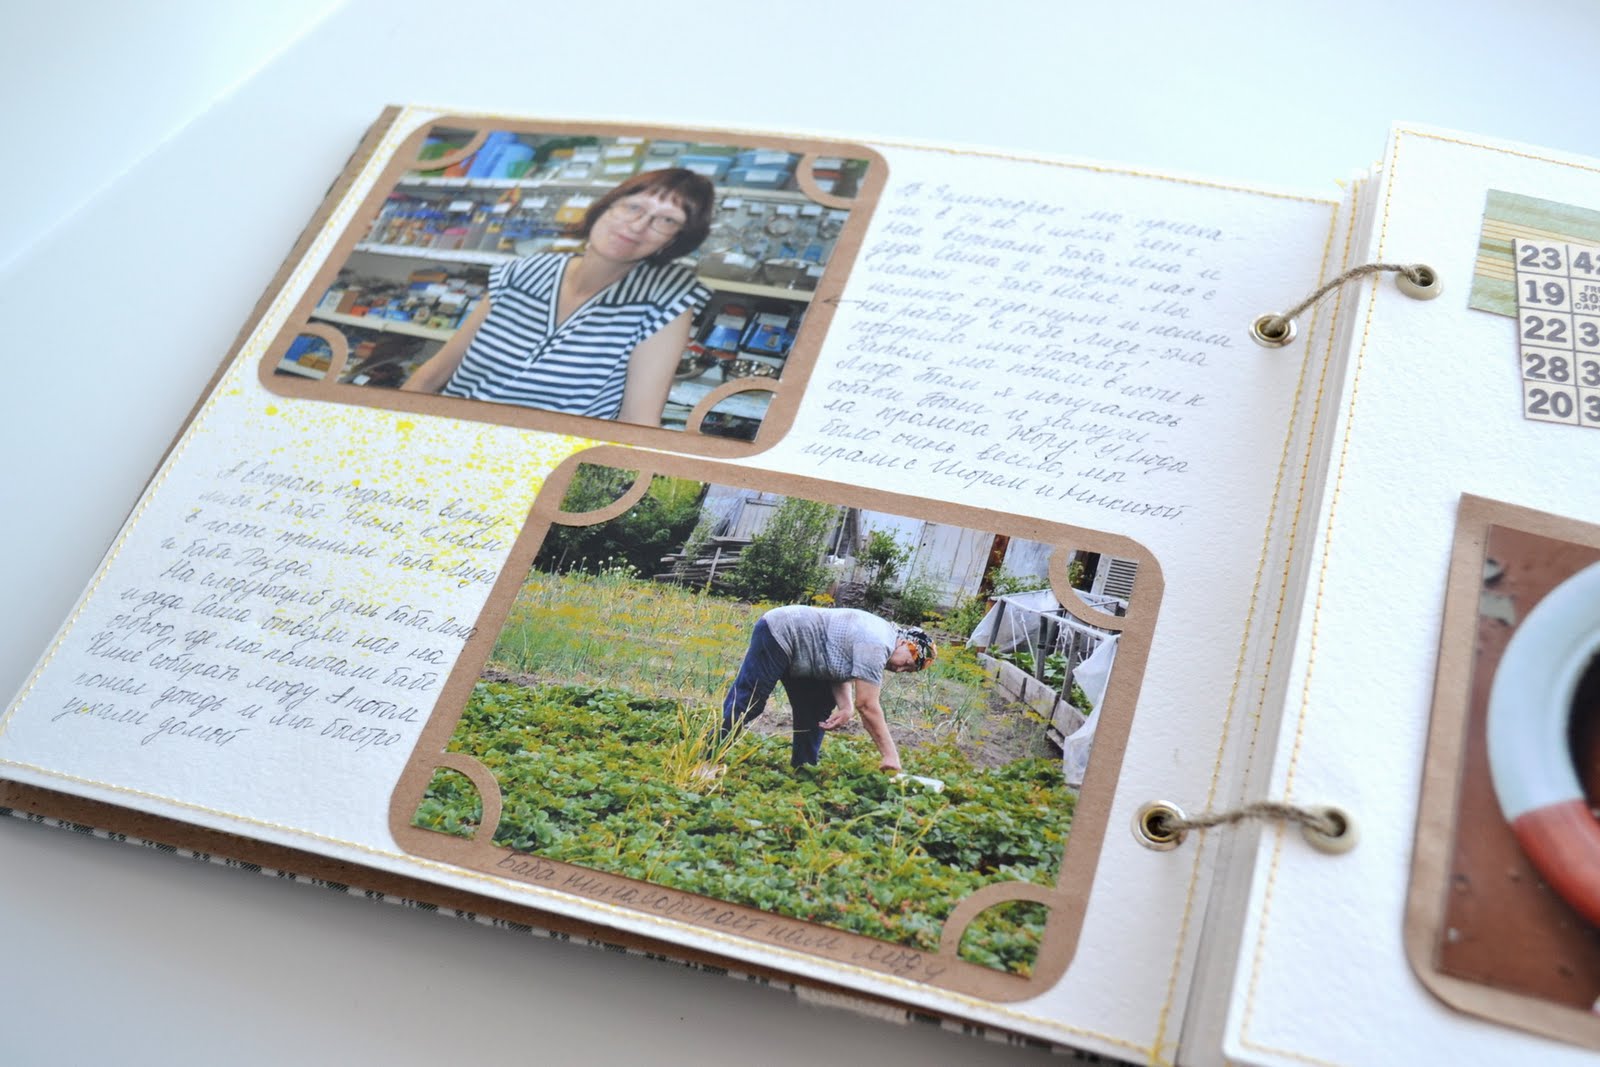 В Змеиногорск мы приеха-
ли в 14.10 1 июля 2011г.
нас встречали баба Лена и
деда Саша и отвезли нас с
мамой к бабе Нине. Мы
немного отдохнули и пошли
на работу к бабе Лиде - она
подарила мне браслет!
Затем мы пошли в гости к
Люде. Там я испугалась
собаки и замучи-
ла кролика Жору. У Люды
было очень весело, мы
играли с Игорем и Никитой.
А вечером, когда мы верну-
лись к бабе Нине, к нам
в гости пришли баба Лида
и баба
На следующий день баба Лена
и деда Саша отвезли нас на
огород, где мы помогали бабе
Нине собирать ягоду. А потом
пошел дождь и мы быстро
уехали домой
Баба Нина собирает нам ягоду
23 42
19 FR 30 CAP
22 3
28 3
20 3